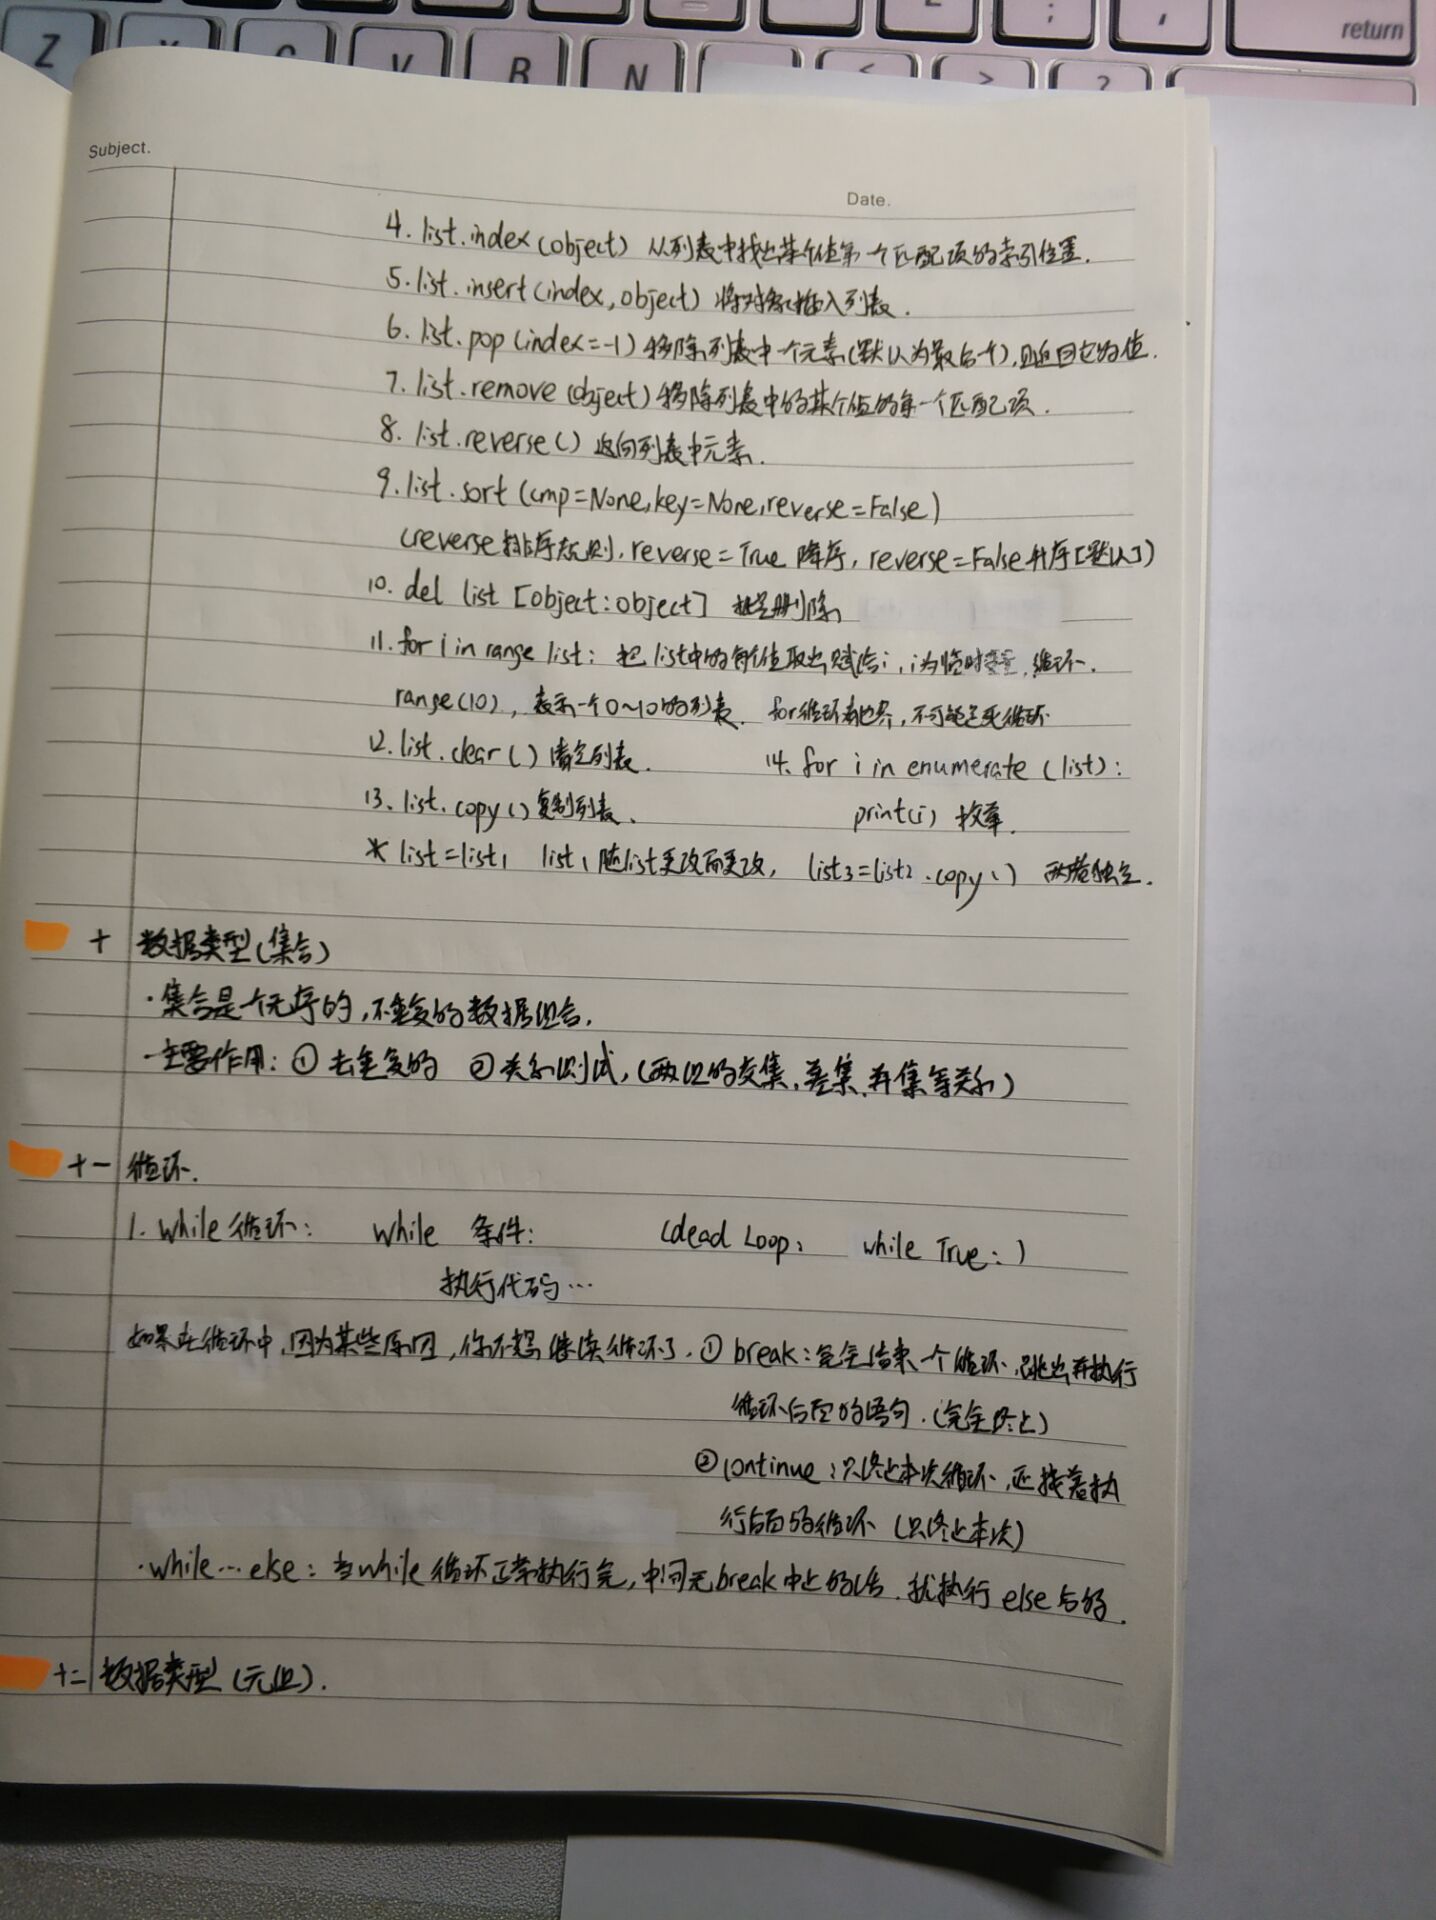 Z X C V B N < > ? : , return
Subject.
Date.
4. list.index(object) 从列表中找出某个值第一个匹配项的索引位置.
5. list.insert(index, object) 将对象插入列表.
6. list.pop(index=-1) 移除列表中一个元素(默认为最后个),且返回它的值.
7. list.remove(object) 移除列表中的某个值的第一个匹配项.
8. list.reverse() 返向列表中元素.
9. list.sort(cmp=None,key=None,reverse=False)
(reverse排序规则, reverse=True 降序, reverse=False升序[默认])
10. del list [object:object] 批量删除
11. for i in range list: 把list中的每个值取出赋给i, i为临时变量, 循环.
range(10), 表示一个0~10的列表. for循环有边界, 不可能是死循环
12. list.clear() 清空列表. 14. for i in enumerate (list):
13. list.copy() 复制列表. print(i) 枚举.
* list=list1 list1随list更改而更改, list3=list2.copy() 两者独立.
十 数据类型(集合)
·集合是一个无序的,不重复的数据组合.
·主要作用: ① 去重复的 ②关系测试,(两组的交集,差集,并集等关系)
十一 循环.
1. while循环: while 条件: (dead Loop: while True:)
执行代码…
如果在循环中,因为某些原因,你不想继续循环了. ① break:完全结束一个循环,跳出并执行
循环后面的语句.(完全终止)
②continue:只终止本次循环,还接着执
行后面的循环 (只终止本次)
·while…else: 当while循环正常执行完,中间无break中止的话,就执行else后的.
十二 数据类型(元组).